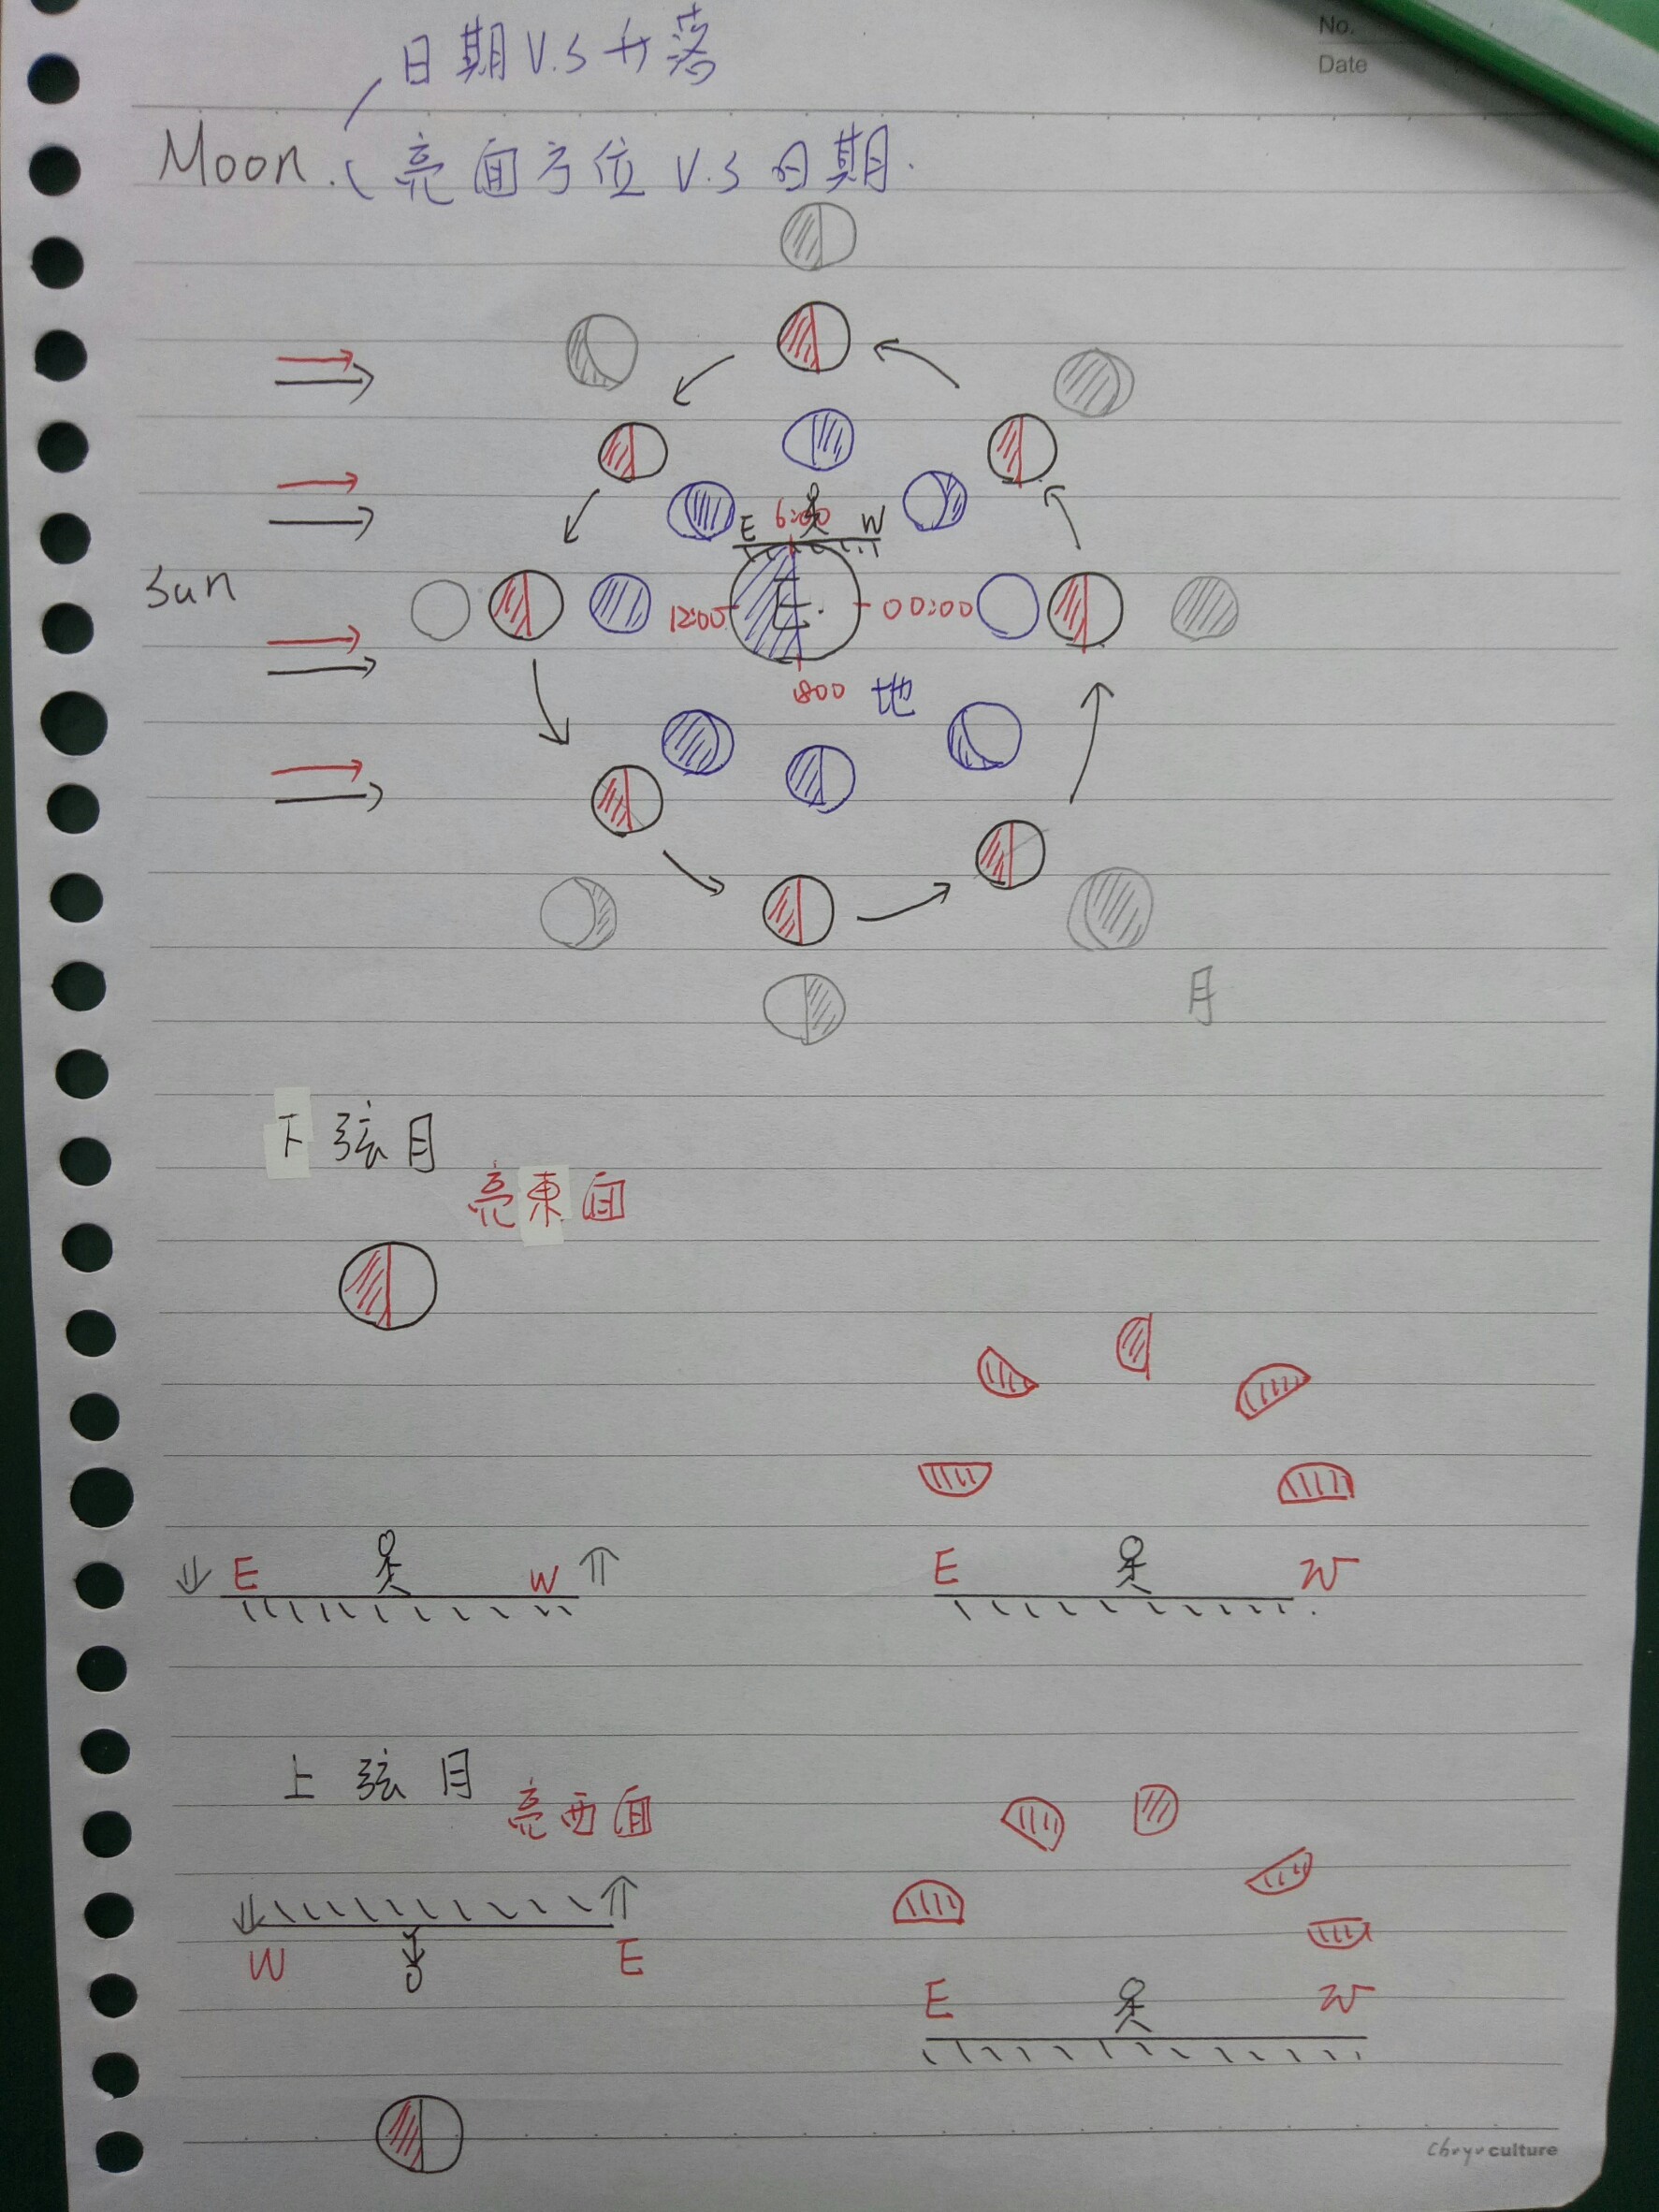 No.
Date
日期 V.S 升落
Moon.
亮面方位 V.S 日期.
6:00
E
W
Sun
12:00
E.
00:00
1800
地
月
下弦月
亮東面
E
W
E
W
上弦月
亮西面
W
E
E
W
culture